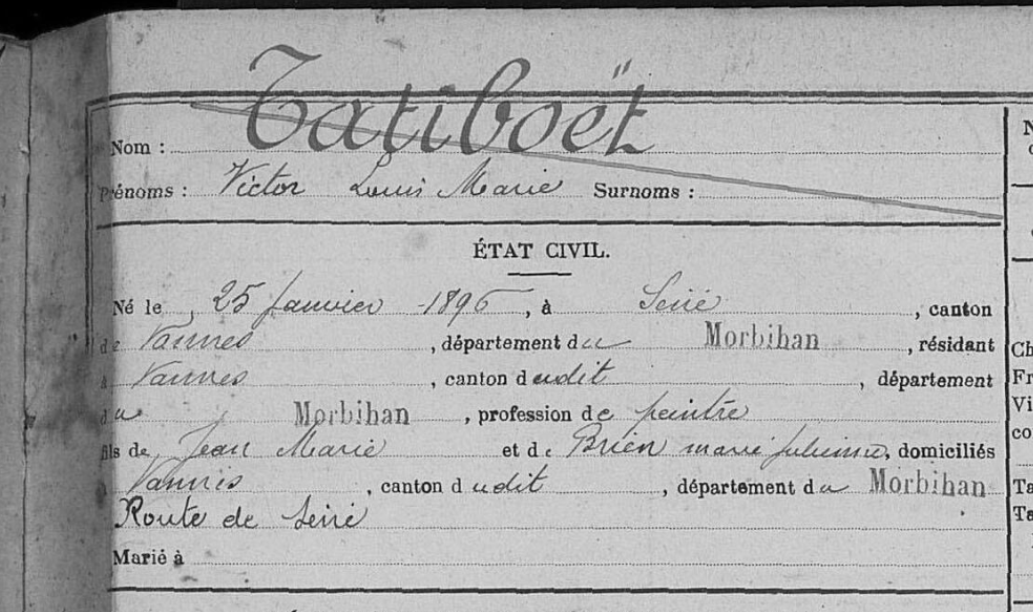 Nom : Tatiboët
Prénoms : Victor Louis Marie Surnoms :
ÉTAT CIVIL.
Né le 25 Janvier 1896, à Séné, canton
de Vannes, département du Morbihan, résidant
à Vannes, canton dudit, département
du Morbihan, profession de peintre
fils de Jean Marie et de Brien marie julienne, domiciliés
à Vannes, canton dudit, département du Morbihan
Route de Séné
Marié à
Ch
Fr
Vi
co
Ta
Ta